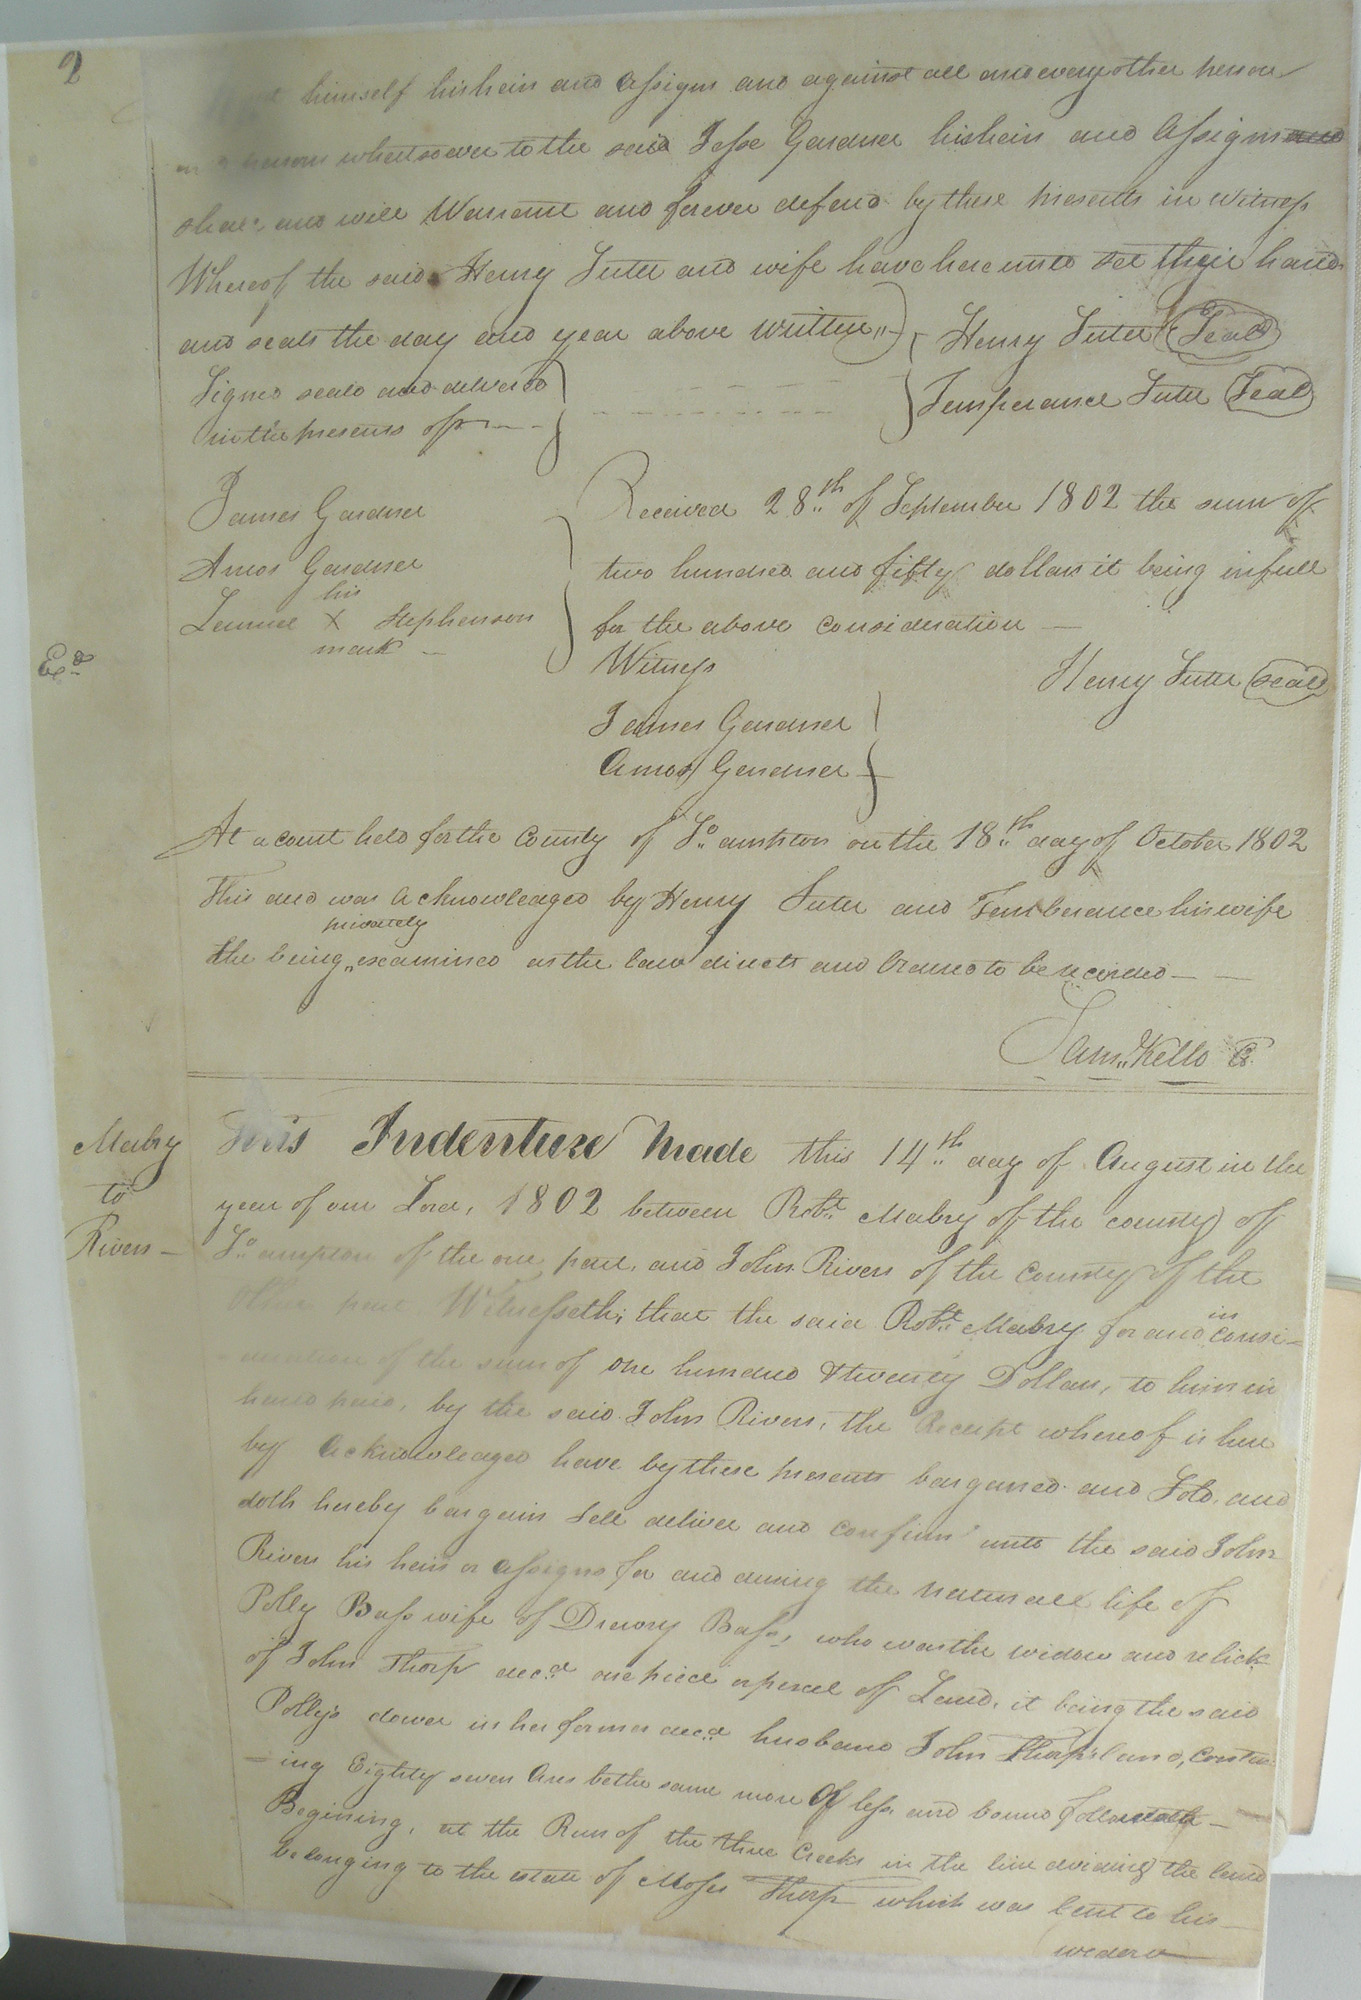 2
himself his heirs and assigns and against all and every other person
persons whatsoever to the said Jesse Gardner his heirs and Assigns and
shall and will Warrant and forever defend by these presents in Witness
Whereof the said Henry Suter and wife have hereunto set their hands
and seals the day and year above written,,
Henry Suter Seal
Signed seald and deliverd
Temperance Suter Seal
in the presents off
James Gardner
Received 28th of September 1802 the sum of
Amos Gardner
two hundred and fifty dollars it being in full
his
Lemuel X Stephenson
for the above consideration
mark
Witness
Exd
Henry Suter Seal
James Gardner
Amos Gardner
At a court held for the County of So ampton on the 18th day of October 1802
This was acknowledged by Henry Suter and Temperance his wife
privately
She being examined as the law directs and Ordered to be recorded
Sam,, Kello C
Mabry
to
Rivers
This Indenture made this 14th day of August in the
year of our Lord, 1802 between Robt Mabry of the county of
So ampton of the one part, and John Rivers of the county of the
in
Other part Witnesseth; that the said Robt Mabry for and consi-
-deration of the sum of one hundred & twenty Dollars, to him in
hand paid, by the said John Rivers, the Receipt whereof is here
by Acknowledged have by these presents bargained and Sold, and
doth hereby bargain Sell deliver and confirm unto the said John
Rivers his heirs or assigns for and during the naturall life of
Polly Bass wife of Drewry Bass, who was the widow and relick
of John Tharp decd one piece or parcel off Land, it being the said
Polly's dower in her former decd husband John Tharps land, contain
-ing Eighty seven Acres be the same more Of less and bound
Begining, at the Run of the three Creeks in the line dividing the land
belonging to the estate of Moses Tharp which was lent to his
widow